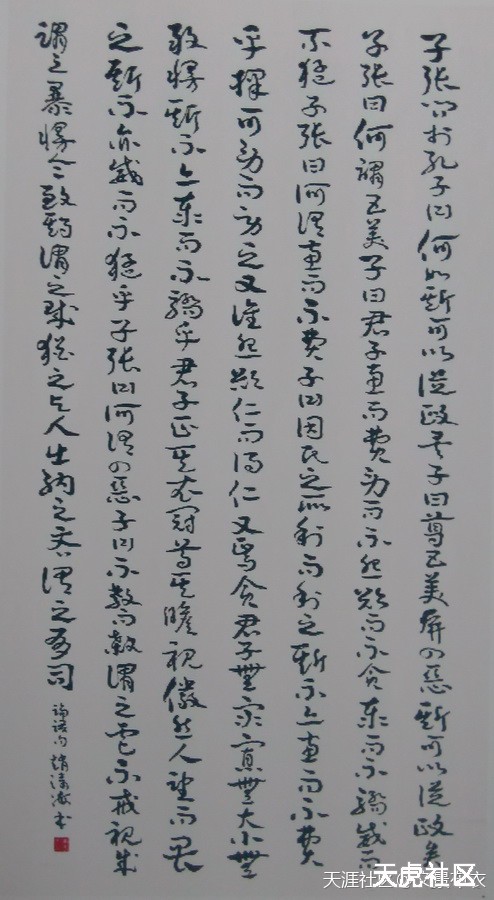 子張問於孔子曰何如斯可以從政矣子曰尊五美屏四惡斯可以從政矣
子張曰何謂五美子曰君子惠而費勞而不怨欲而不貪泰而不驕威而
不猛子張曰何謂惠而不費子曰因民之所利而利之斯不亦惠而不費
乎擇可勞而勞之又誰怨欲仁而得仁又焉貪君子無眾寡無大小無
敢慢斯不亦泰而不驕乎君子正其衣冠尊其瞻視儼然人望而畏
之斯不亦威而不猛乎子張曰何謂四惡子曰不教而殺謂之虐不戒視成
謂之暴慢令致期謂之賊猶之與人出納之吝謂之有司
論語句 趙 書
天涯社区@
天虎社区